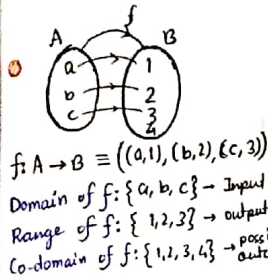 f
A B
a 1
b 2
c 3
4
f: A → B ≡ ((a,1), (b,2), (c, 3))
Domain of f: {a, b, c} → Input
Range of f: { 1,2,3} → output
Co-domain of f: {1,2,3,4} →